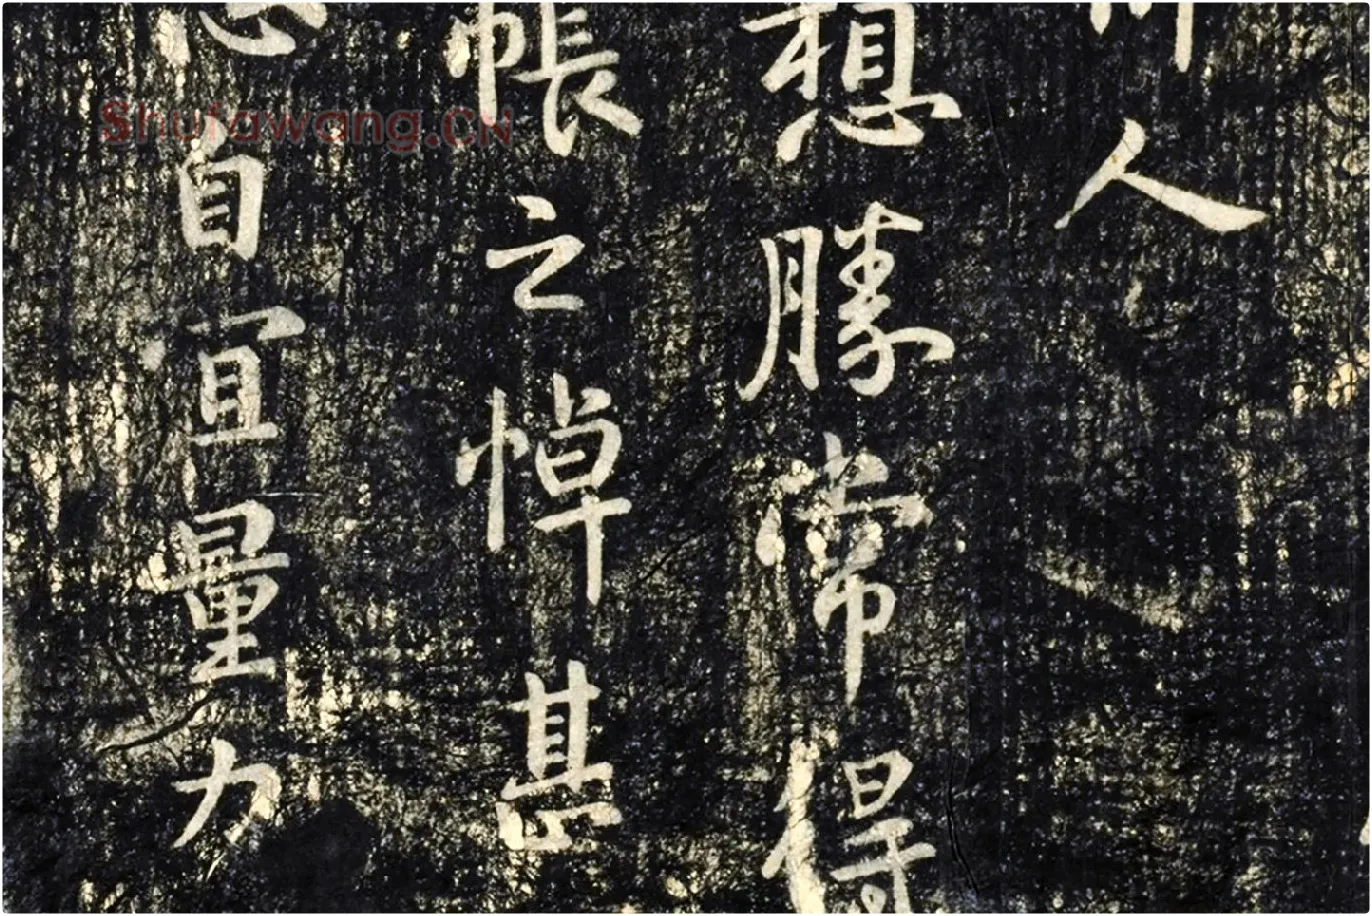 人
想勝常得
帳之悼甚
自宜量力
Shufawang.CN